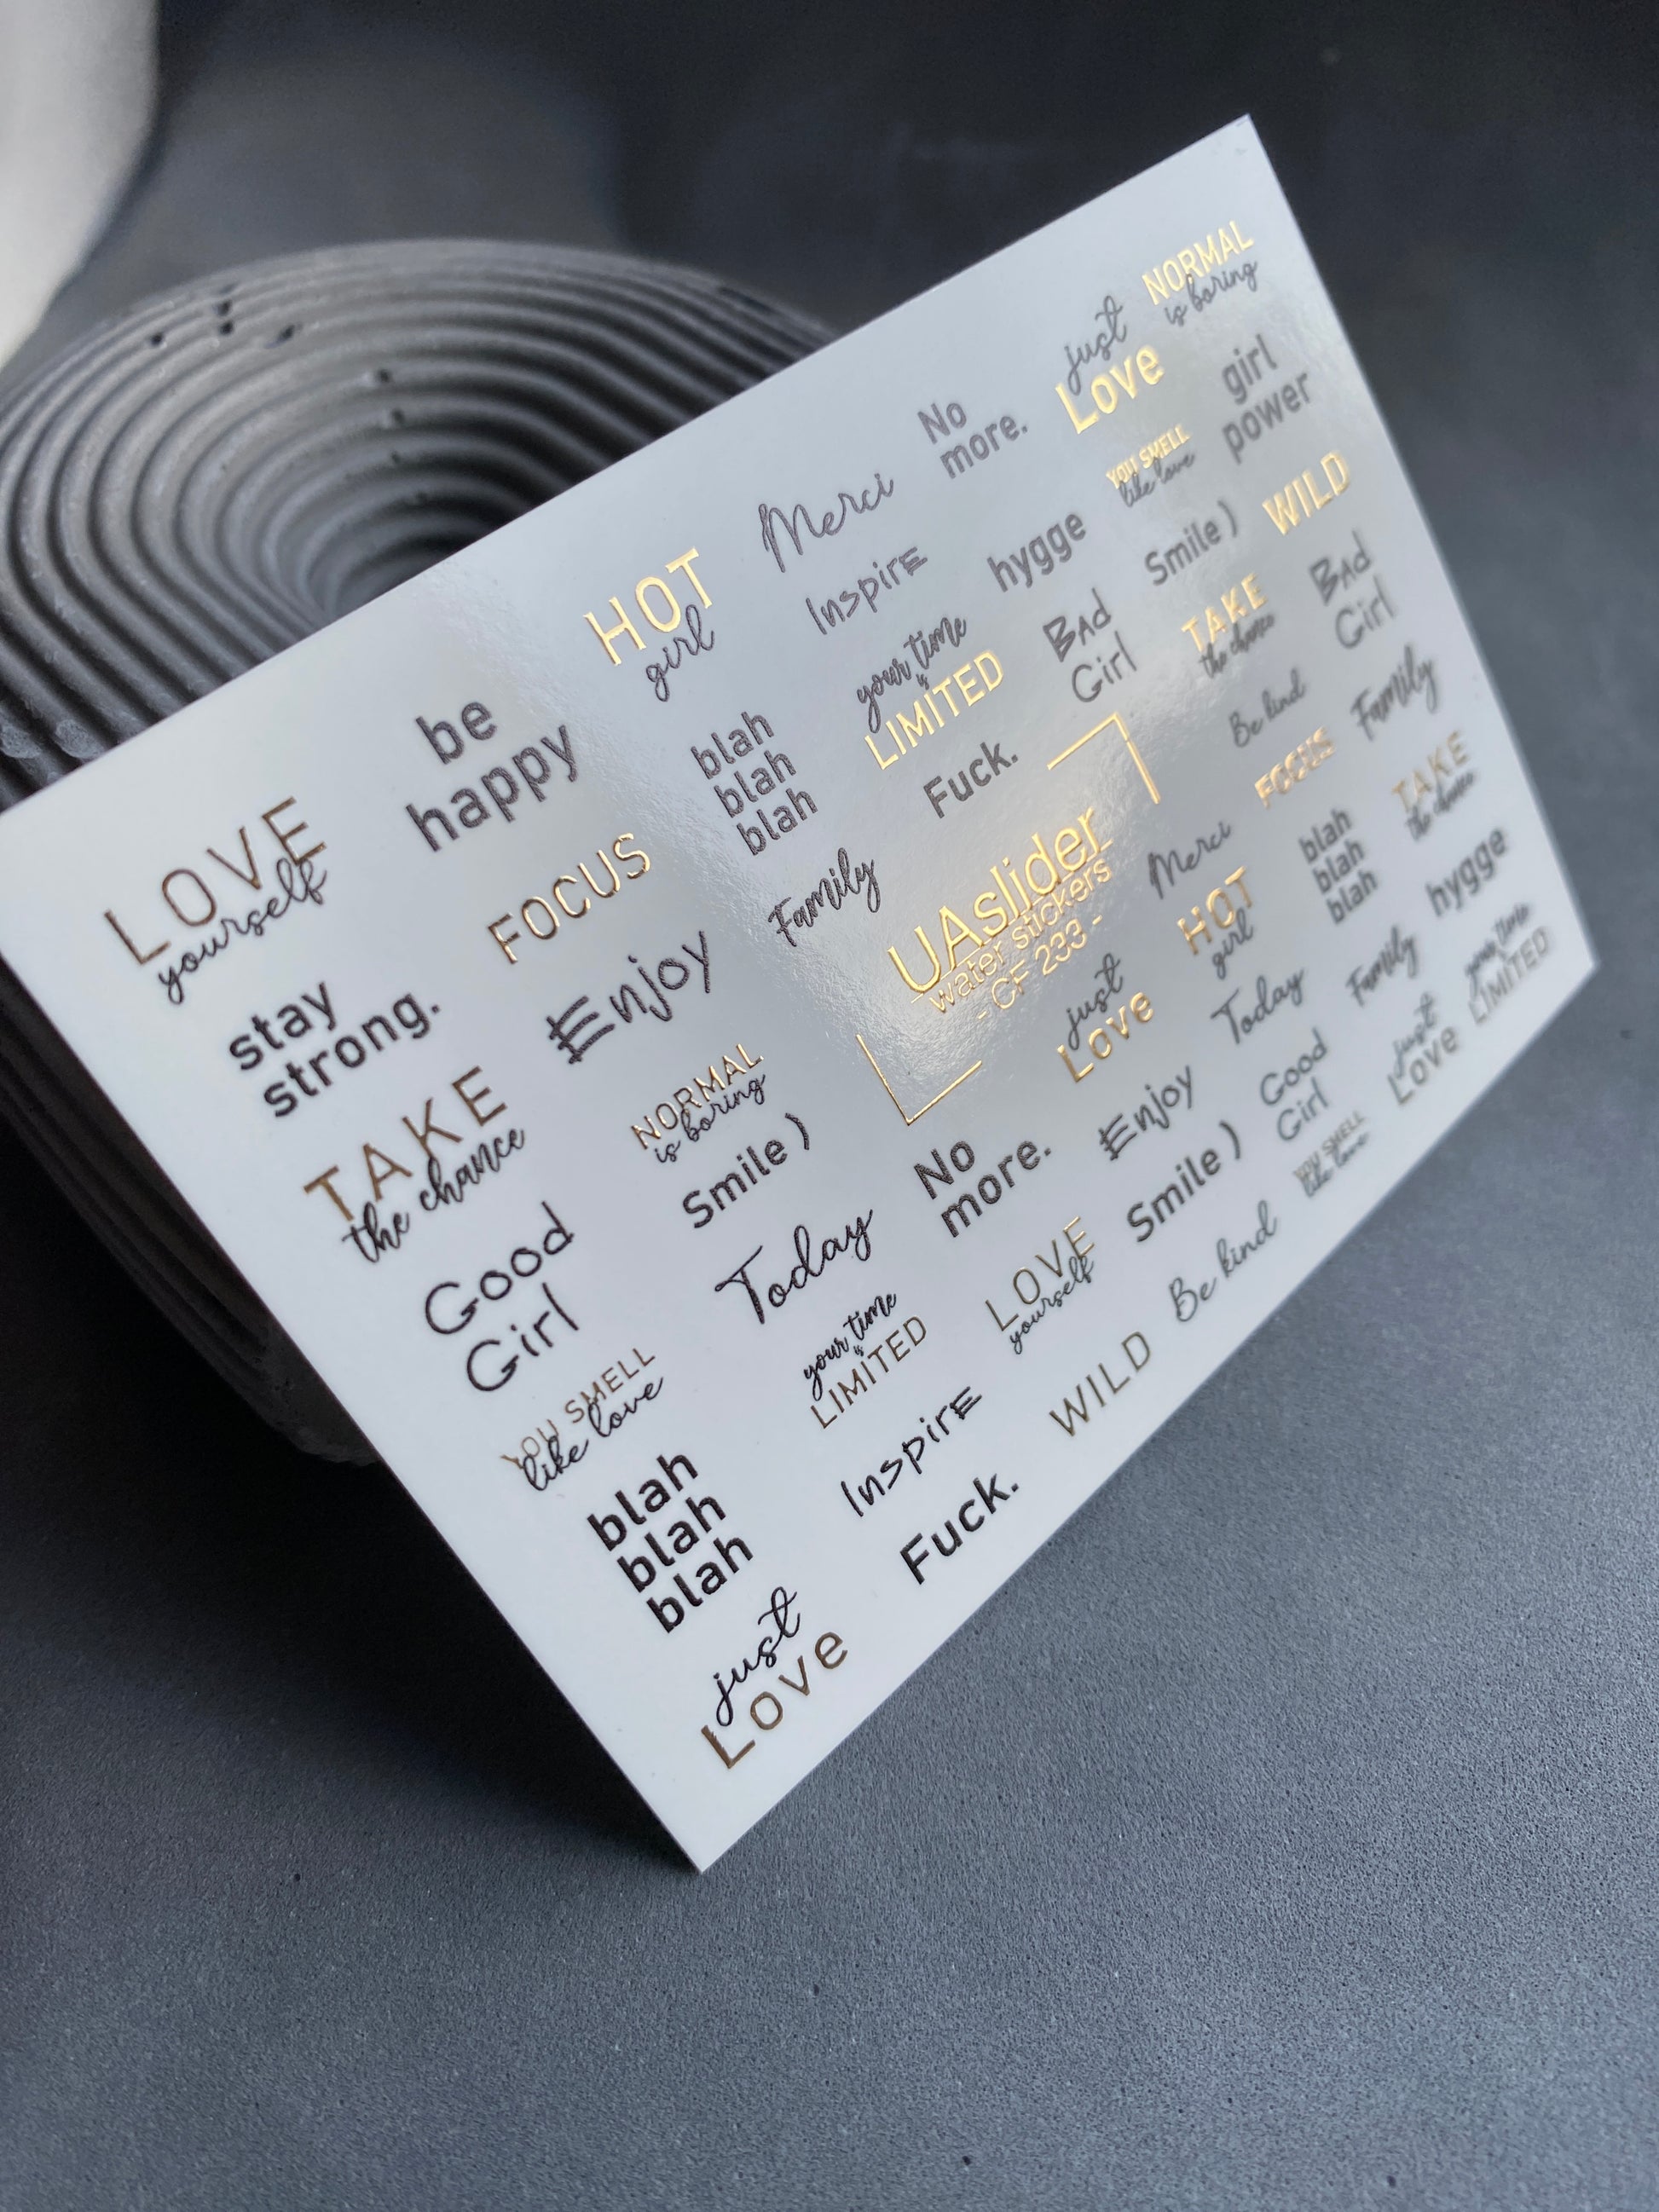 LOVE
yourself
be
happy
HOT
girl
Merci
No
more.
just
Love
NORMAL
is boring
stay
strong.
FOCUS
blah
blah
blah
Inspire
hygge
YOU SMELL
like love
girl
power
TAKE
the chance
Enjoy
Family
your time
is
LIMITED
Bad
Girl
Smile )
WILD
Good
Girl
NORMAL
is boring
Fuck.
TAKE
the chance
Bad
Girl
Smile )
UAslider
water stickers
- CF 233 -
Be kind
Family
YOU SMELL
like love
Today
Merci
FOCUS
TAKE
the chance
blah
blah
blah
your time
is
LIMITED
No
more.
just
Love
HOT
girl
blah
blah
blah
hygge
just
Love
Inspire
LOVE
yourself
Enjoy
Today
Family
your time
LIMITED
Fuck.
WILD
Smile )
Good
Girl
just
Love
Be kind
YOU SMELL
like love